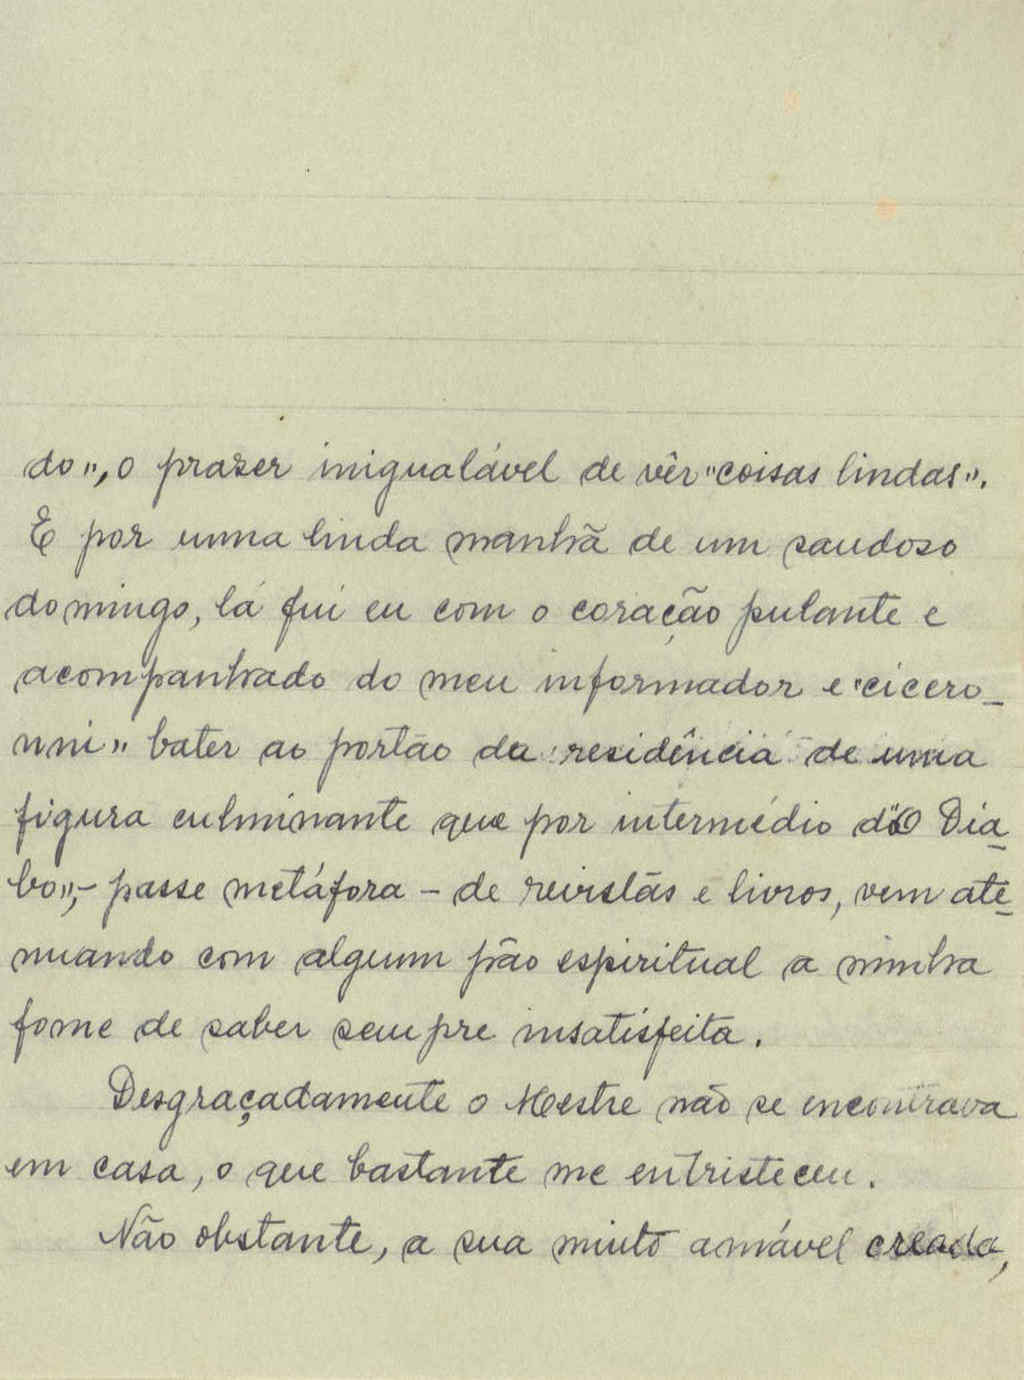 do", o prazer inigualável de vêr "coisas lindas".
E por uma linda manhã de um saudoso
domingo, lá fui eu com o coração pulante e
acompanhado do meu informador e "cicero-
nni" bater ao portão da residência de uma
figura culminante que por intermédio d'"O Dia-
bo", - passe metáfora - de revistas e livros, vem ate-
nuando com algum pão espiritual a minha
fome de saber sempre insatisfeita.
Desgraçadamente o Mestre não se encontrava
em casa, o que bastante me entristeceu.
Não obstante, a sua muito amável creada,